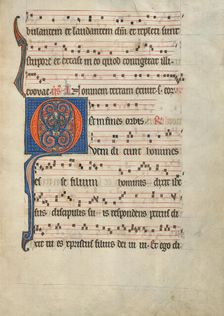 bulantem et laudantem dm et repleti sunt
stupore et extasi in eo quod contigerat illi
euovae In omnem terram exiuit s. eor
et in fines orbis
Quem dicunt homines
esse filium hominis dixit ihe
sus discipulis suis respondens petrus di
xit tu es xpistus filius dei uiui Et ego di